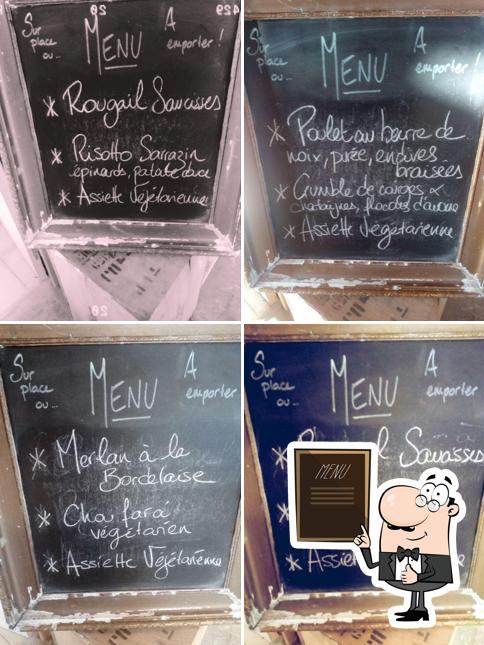 Sur place ou...
MENU
A emporter !
* Rougail Saucisses
* Risotto Sarrazin
épinards, patate douce
* Assiette Végétarienne
Sur place ou...
MENU
A emporter !
* Poulet au beurre de
noix, purée, endives
braisées
* Crumble de courges &
chataîgnes, flocons d'avoine
* Assiette Végétarienne
Sur place ou...
MENU
A emporter
* Merlan à la
Bordelaise
* Chou farci
végétarien
* Assiette Végétarienne
Sur place ou...
MENU
A emporter
Saucisses
MENU
* Assie